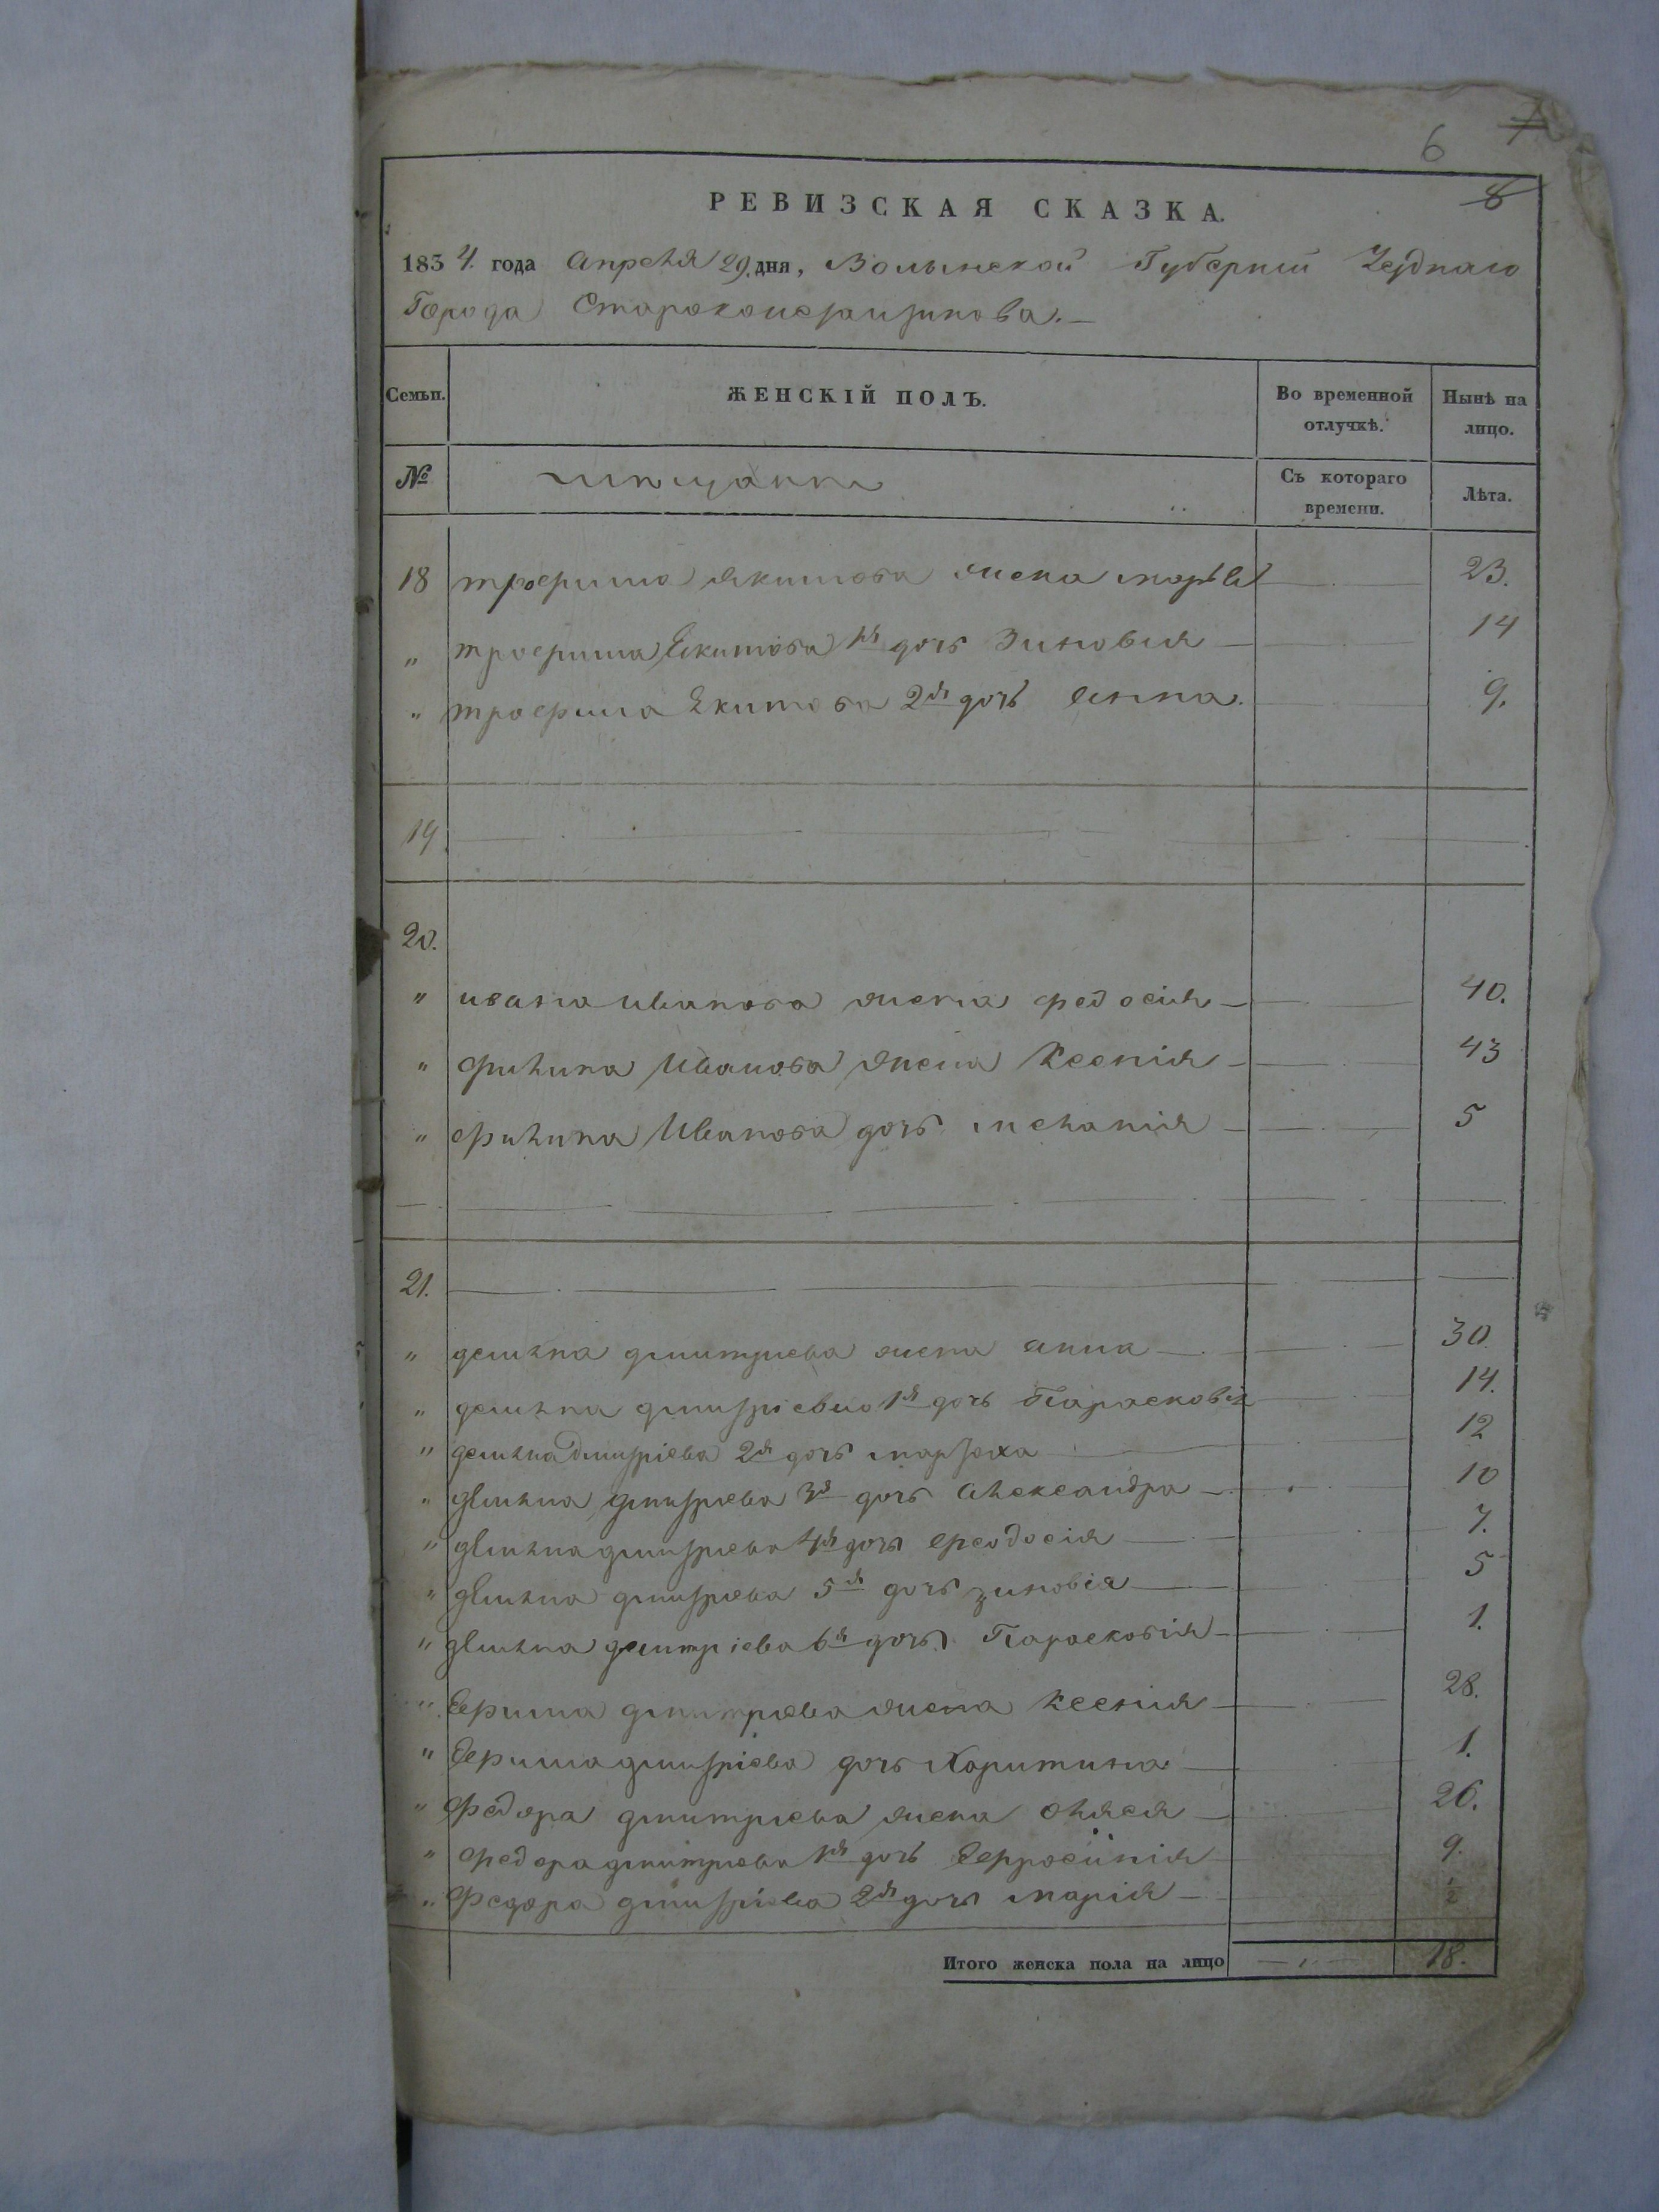 6 7
8
РЕВИЗСКАЯ СКАЗКА.
1834. года Апреля 29. дня, Волынской Губернии Уезднаго
Города Староконстантинова.—
Семьи. ЖЕНСКІЙ ПОЛЪ. Во временной отлучкѣ. Нынѣ на лицо.
№ мещанки Съ котораго времени. Лѣта.
18 трофима Якимова жена марья 23.
" трофима Якимова 1я дочь Зиновия 14
" трофима Якимова 2я дочь анна. 9.
19
20.
" ивана Иванова жена федосія 40.
" филипа Иванова жена Ксенія 43
" филипа Иванова дочь меланія 5
21.
" демяна дмитриева жена анна 30
" демяна дмитріева 1я дочь Парасковія 14.
" демяна дмитріева 2я дочь 12
" демяна дмитриева 3я дочь Александра 10
" демяна дмитриева 4я дочь феодосія 7.
" демяна дмитриева 5я дочь зиновія 5
" демяна дмитріева 6я дочь Парасковія 1.
" Ефима дмитриева жена Ксенія 28.
" Ефима дмитріева дочь Харитина 1.
" Федора дмитриева жена 26.
" федора дмитриева 1я дочь Ефросинія 9.
" Федора дмитріева 2я дочь марія 1/2
Итого женска пола на лицо 18.